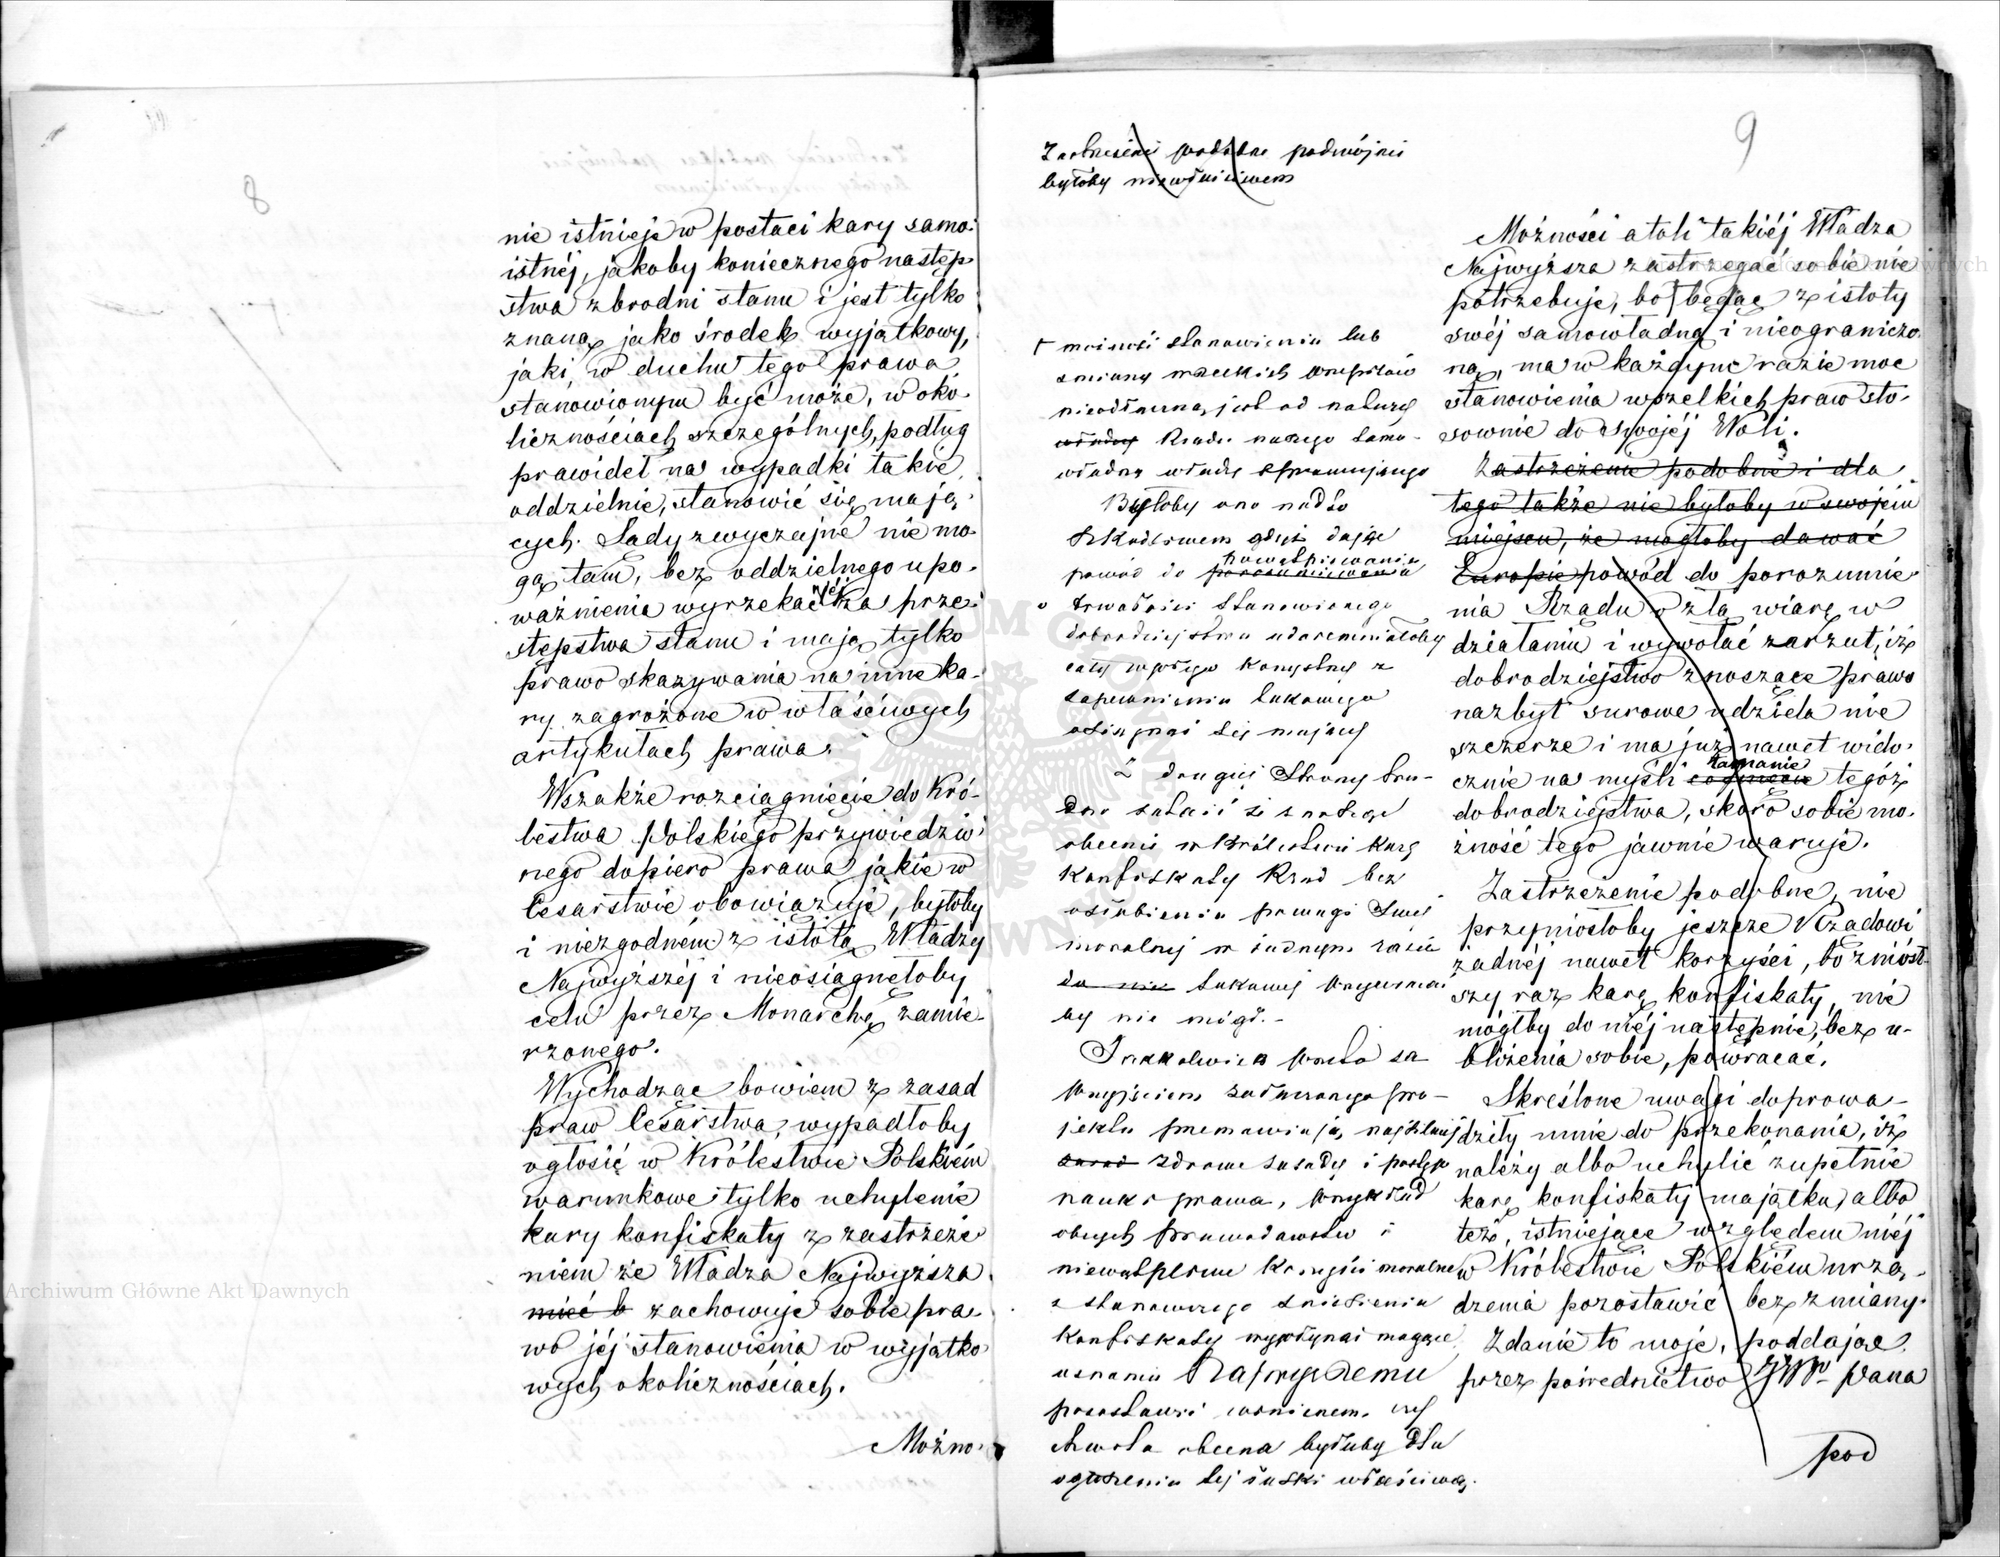 8
nie istnieje w postaci kary samo-
istnéj, jakoby koniecznego następ-
stwa zbrodni stanu i jest tylko
znaną, jako środek wyjątkowy,
jaki, w duchu tego prawa
stanowionym być może, w oko-
licznościach szczególnych, podług
prawideł na wypadki takie
oddzielnie, stanowić się mają-
cych. Sądy zwyczajne nie mo-
gą tam, bez oddzielnego upo-
ważnienia wyrzekać jéj za prze-
stępstwa stanu i mają tylko
prawo skazywania na inne ka-
ry zagrożone w właściwych
artykułach prawa.
Wszakże rozciągnięcie do Kró-
lestwa Polskiego przywiedzio-
nego dopiero prawa jakie w
Cesarstwie obowiązuje, byłoby
i niezgodném z istotą Władzy
Najwyższéj i nieosiągnęłoby
celu przez Monarchę zamie-
rzonego.
Wychodząc bowiem z zasad
praw Cesarstwa, wypadłoby
ogłosić w Królestwie Polskiém
warunkowe tylko uchylenie
kary konfiskaty z zastrzeże-
niem że Władza Najwyższa
mieć b zachowuje sobie pra-
wo jéj stanowienia w wyjątko-
wych okolicznościach.
Możno-
9
Zastrzeżenie podobne podwójnie
byłoby niewłaściwem
możność stanowienia lub
zmiany wszelkich przepisów
nieodłączną jest od natury
władzy Rządu naszego samo-
władną władzę sprawującego
Byłoby ono nadto
szkodliwem gdyż dając
powątpiewania
powód do porozumiewania
trwałości stanowionego
dobrodziejstwa udaremniałoby
cały wpływ korzystny z
zapewnienia takowego
osiągnąć się mający
Z drugiéj strony tru-
dno
obecnie w Królestwie karę
konfiskaty Rząd bez
osłabienia powagi swéj
moralnej w żadnym razie
do nie takowej przywracać
by nie mógł.-
Jakkolwiek przeto za
przyjęciem zadanego pro-
jektu przemawiają najsilniéj
zasad zdrowe zasady i postęp
nauki prawa, przykład
obcych prawodawstw i
niewątpliwe korzyści moralne
z stanowczego zniesienia
konfiskaty wypłynąć mogące
uznaniu Najwyższemu
pozostawić winienem, czy
chwila obecna byłaby dla
ogłoszenia tej łaski właściwą.
Możności atoli takiéj Władza
Najwyższa zastrzegać sobie nie
potrzebuje, bo będąc z istoty
swéj samowładną i nieograniczo-
ną, ma w każdym razie moc
stanowienia wszelkich praw sto-
sownie do swojéj Woli.
Zastrzeżenie podobne i dla
tego także nie byłoby w swojém
miejscu, że mogłoby dawać
Europie powód do porozumie-
nia Rządu o złą wiarę w
działaniu i wywołać zarzut, iż
dobrodziejstwo znoszące prawo
nazbyt surowe udziela nie
szczerze i ma już nawet wido-
łamanie
cznie na myśli cofnięcie tegóż
dobrodziejstwa, skoro sobie mo-
żność tego jawnie waruje.
Zastrzeżenie podobne, nie
przyniosłoby jeszcze Rządowi
żadnéj nawet korzyści, bo zniósł-
szy raz karę konfiskaty, nie
mógłby do niéj następnie, bez u-
bliżenia sobie, powracać.
Skreślone uwagi doprowa-
dziły mnie do przekonania, iż
należy albo uchylić zupełnie
karę konfiskaty majątku, albo
też, istniejące względem niéj
w Królestwie Polskiém urzą-
dzenia pozostawić bez zmiany.
Zdanie to moje, poddając
przez pośrednictwo JWo Pana
pod